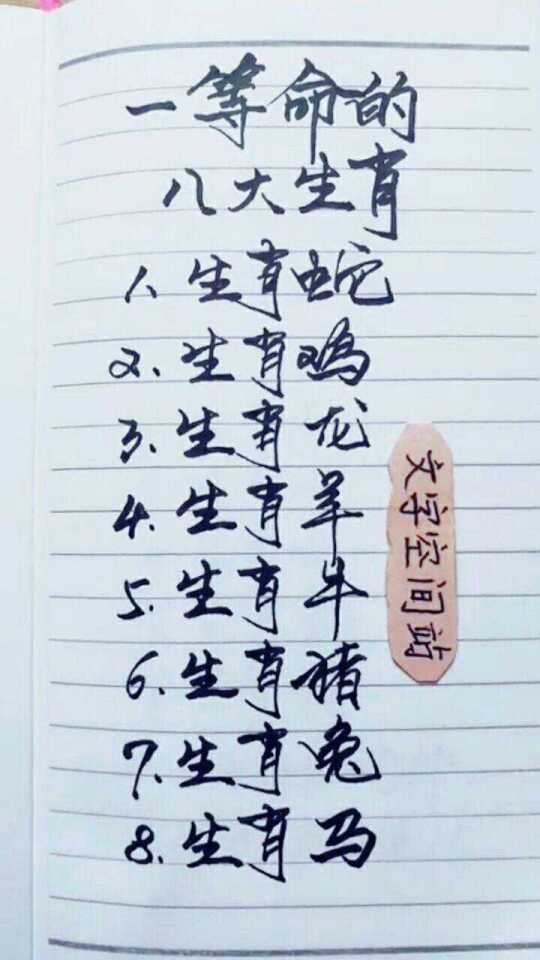 一等命的
八大生肖
1、生肖蛇
2、生肖鸡
3、生肖龙
4、生肖羊
5、生肖牛
6、生肖猪
7、生肖兔
8、生肖马
文字空间站